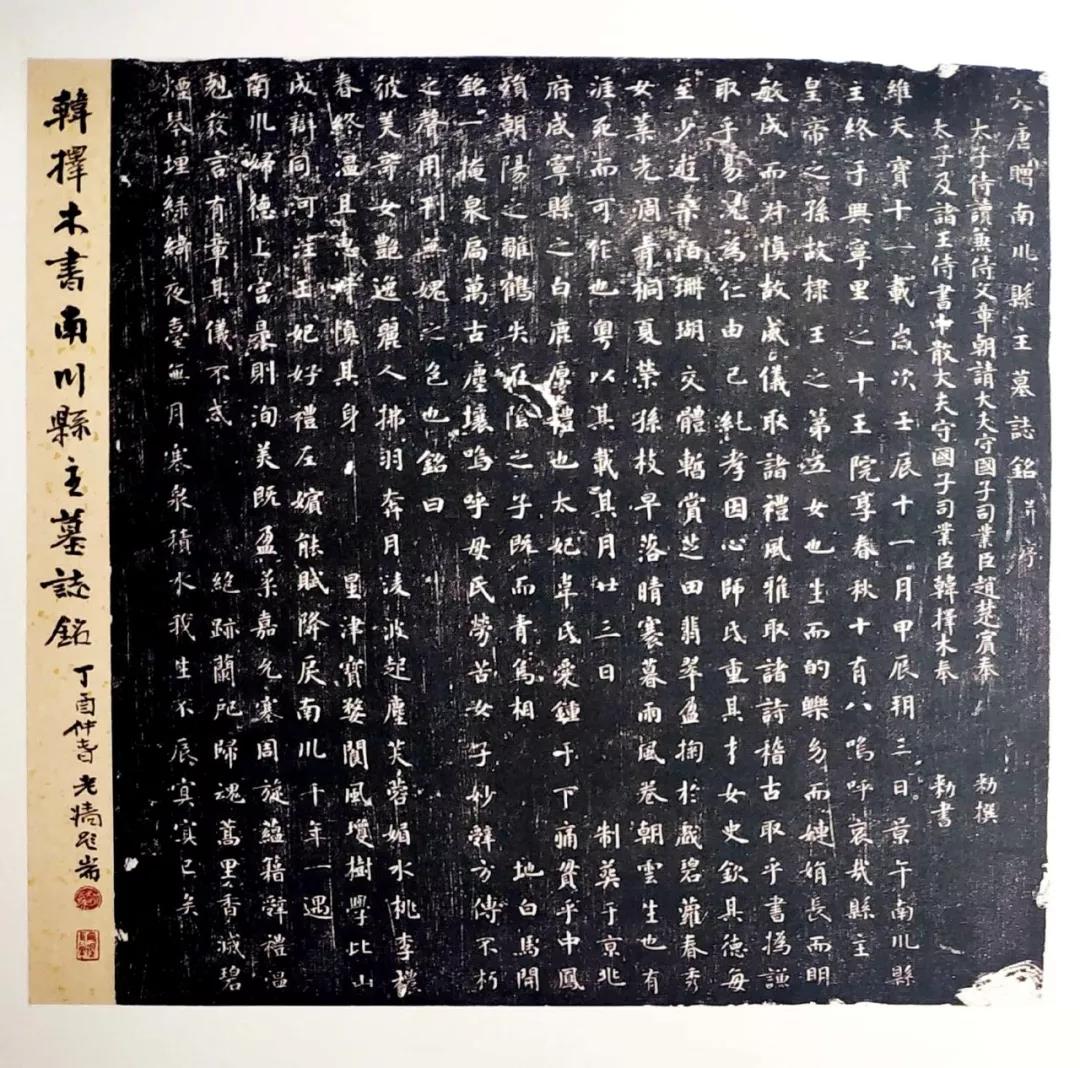 大唐贈南川縣主墓誌銘并序
太子侍讀兼侍文章朝請大夫守國子司業臣趙楚賓奉 勑撰
太子及諸王侍書中散大夫守國子司業臣韓擇木奉 勑書
維天寶十一載歲次壬辰十一月甲辰朔三日景午南川縣
主終于興寧里之十王院享春秋十有八嗚呼哀哉縣主
皇帝之孫故棣王之第五女也生而的皪幼而婕娟長而明
敏成而淑慎故威儀取諸禮風雅取諸詩稽古取乎書撝謙
取乎易况為仁由己純孝因心師氏重其才女史欽其德每
至少遊桑陌珊瑚交體暫賞芝田翡翠盈掬於戲碧蘿春秀
女葉先凋青桐夏榮孫枝早落晴褰暮雨風卷朝雲生也有
涯死而可作也粵以其載其月廿三日 制葬于京兆
府咸寧縣之白鹿原禮也太妃韋氏愛鍾于下痛貫乎中鳳
殞朝陽之雛鶴失在陰之子既而青烏相 地白馬開
銘一掩泉扃萬古塵壤嗚呼母氏勞苦女子妙辤方傳不朽
之聲用刊無媿之色也銘曰
彼美帝女艷逸麗人拂羽奔月凌波起塵芙蓉媚水桃李穠
春終溫且惠淑慎其身 星津寶婺閬風瓊樹學比山
成辯同河注王妃好禮左嬪能賦降戾南川千年一遇
南川婦德上宮最則洵美既盈柔嘉允塞周旋蘊籍辤禮溫
尅發言有章其儀不忒 絕跡蘭戺歸魂蒿里香滅碧
煙琴埋綠綺夜臺無月寒泉積水我生不辰寘寘已矣
韓擇木書南川縣主墓誌銘 丁酉仲春